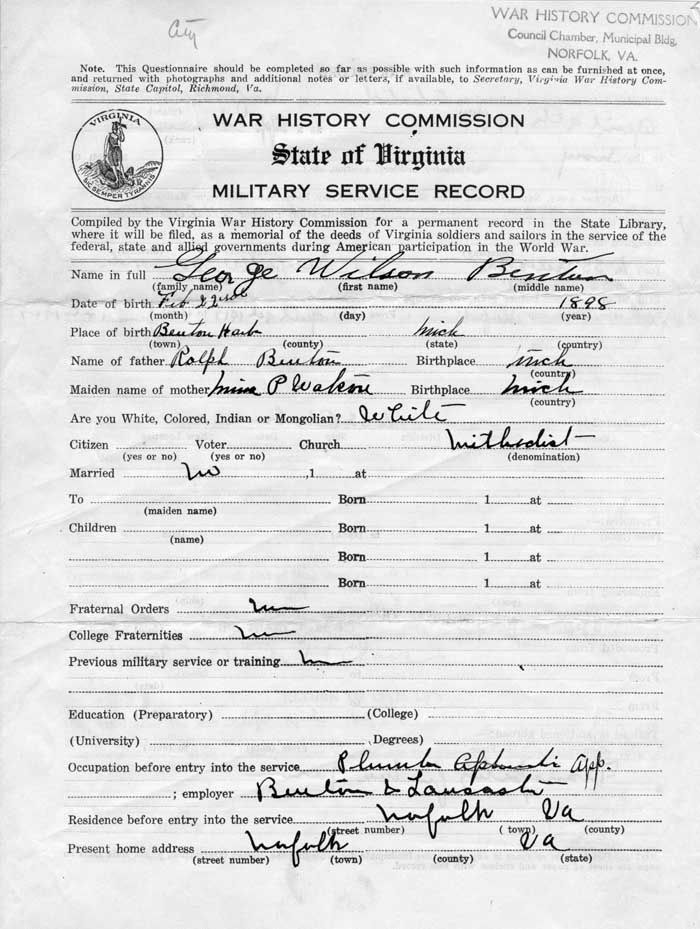 City
WAR HISTORY COMMISSION
Council Chamber, Municipal Bldg,
NORFOLK, VA.
Note. This Questionnaire should be completed so far as possible with such information as can be furnished at once,
and returned with photographs and additional notes or letters, if available, to Secretary, Virginia War History Com-
mission, State Capitol, Richmond, Va.
VIRGINIA
SIC SEMPER TYRANNIS
WAR HISTORY COMMISSION
State of Virginia
MILITARY SERVICE RECORD
Compiled by the Virginia War History Commission for a permanent record in the State Library,
where it will be filed, as a memorial of the deeds of Virginia soldiers and sailors in the service of the
federal, state and allied governments during American participation in the World War.
Name in full George Wilson Benton
(family name) (first name) (middle name)
Date of birth Feb 22 1898
(month) (day) (year)
Place of birth Benton Harb Mich
(town) (county) (state) (country)
Name of father Ralph Benton Birthplace Mich
(country)
Maiden name of mother P Birthplace Mich
(country)
Are you White, Colored, Indian or Mongolian? White
Citizen Voter Church Methodist
(yes or no) (yes or no) (denomination)
Married No ,1 at
To Born 1 at
(maiden name)
Children Born 1 at
(name)
Born 1 at
Born 1 at
Fraternal Orders no
College Fraternities no
Previous military service or training no
Education (Preparatory) (College)
(University) Degrees)
Occupation before entry into the service Plumber App.
; employer Benton & Lancaster
Residence before entry into the service Norfolk Va
(street number) (town) (county)
Present home address Norfolk Va
(street number) (town) (county) (state)